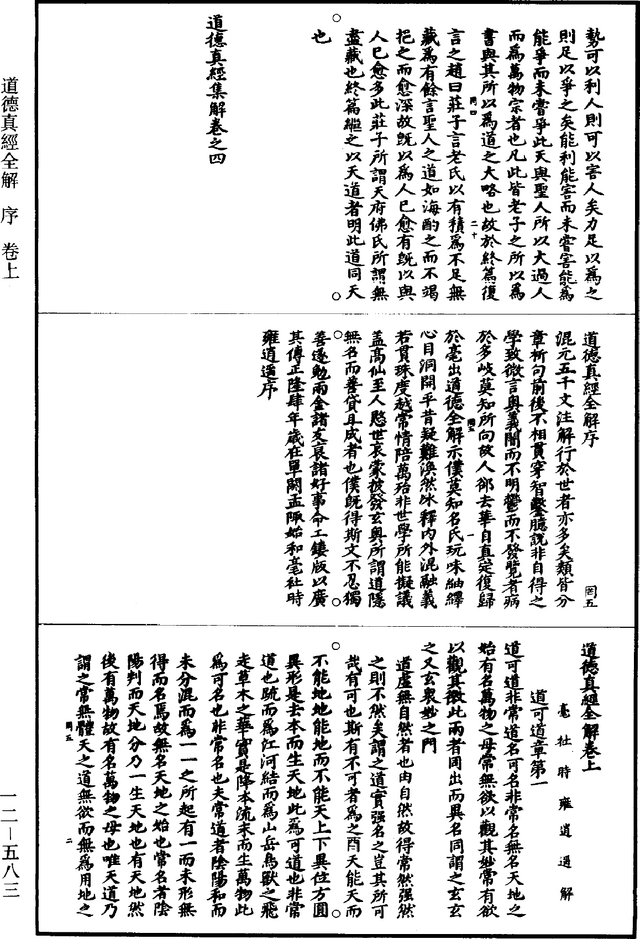 勢可以利人則可以害人矣力足以為之
則足以爭之矣能利能害而未嘗害能為
能爭而未嘗爭此天與聖人所以大過人
而為萬物宗者也凡此皆老子之所以為
書與其所以為道之大略也故於終篇復
言之趙曰莊子言老氏以有積為不足無
藏為有餘言聖人之道如海酌之而不竭
挹之而愈深故既以為人已愈有既以與
人已愈多此莊子所謂天府佛氏所謂無
盡藏也終篇繼之以天道者明此道同天
也
道德真經集解卷之四
道德真經全解序
混元五千文注解行於世者亦多矣類皆分
章析句前後不相貫穿智鑿臆說非自得之
學致微言奧義闇而不明鬱而不發覽者病
於多岐莫知所向故人郤去華自真定復歸
於亳出道德全解示僕莫知名氏玩味紬繹
心目洞開平昔疑難渙然冰釋內外混融義
若貫珠度越常情陪萬殆非世學所能擬議
蓋高仙至人愍世哀蒙披發玄奧所謂道隱
無名而善貸且成者也僕既得斯文不忍獨
善遂勉兩金諸友裒諸好事命工鏤版以廣
其傳正隆肆年歲在單閼孟陬始和亳社時
雍逍遥序
道德真經全解卷上
亳社時雍逍遥解
道可道章第一
道可道非常道名可名非常名無名天地之
始有名萬物之母常無欲以觀其妙常有欲
以觀其徼此兩者同出而異名同謂之玄玄
之又玄衆妙之門
道虛無自然者也由自然故得常然強然
之則不然矣謂之道實強名之豈其所可
哉有可也斯有不可者為之酉天能天而
不能地地能地而不能天上下異位方圓
異形是去本而生天地此為可道也非常
道也號而為江河結而為山岳鳥獸之飛
走草木之華實是降本流末而生萬物此
為可名也非常名也夫常道者陰陽和而
未分混而為一一之所起有一而未形無
得而名焉故無名天地之始也常名者陰
陽判而天地分乃一生天地也有天地然
後有萬物故有名萬物之母也唯天道乃
謂之常無體天之道無欲而無為用地之
道德真經全解 序 卷上
一二—五八三